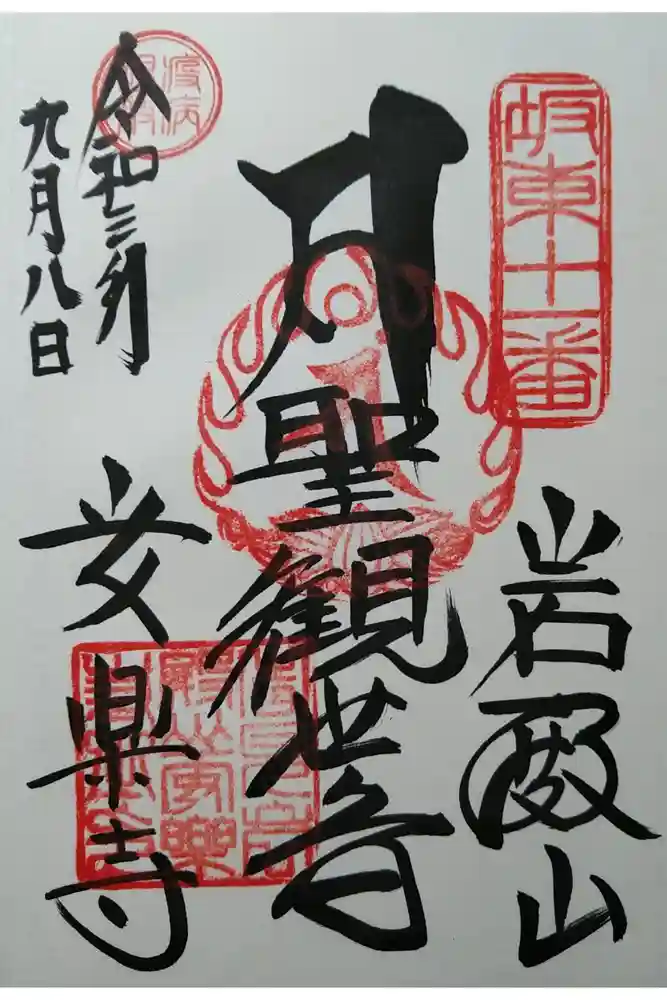 坂東十一番
岩殿山
聖観世音
令和三年
九月八日
疫病
安楽寺